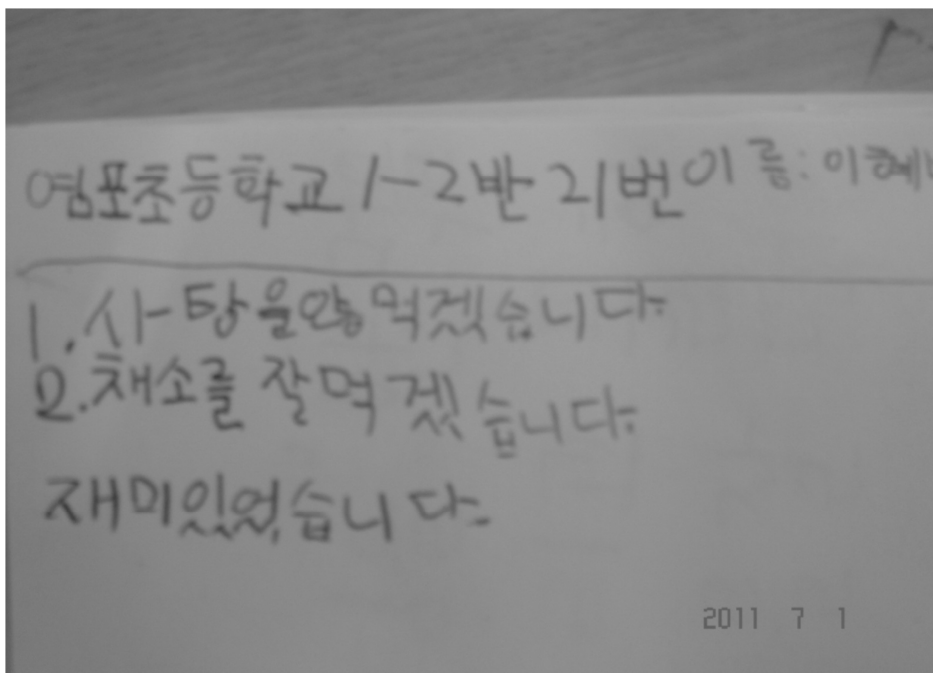 염포초등학교 1-2반 21번 이름: 이혜
1. 사탕을 않 먹겠습니다.
2. 채소를 잘 먹겠습니다.
재미있었습니다.
2011 7 1